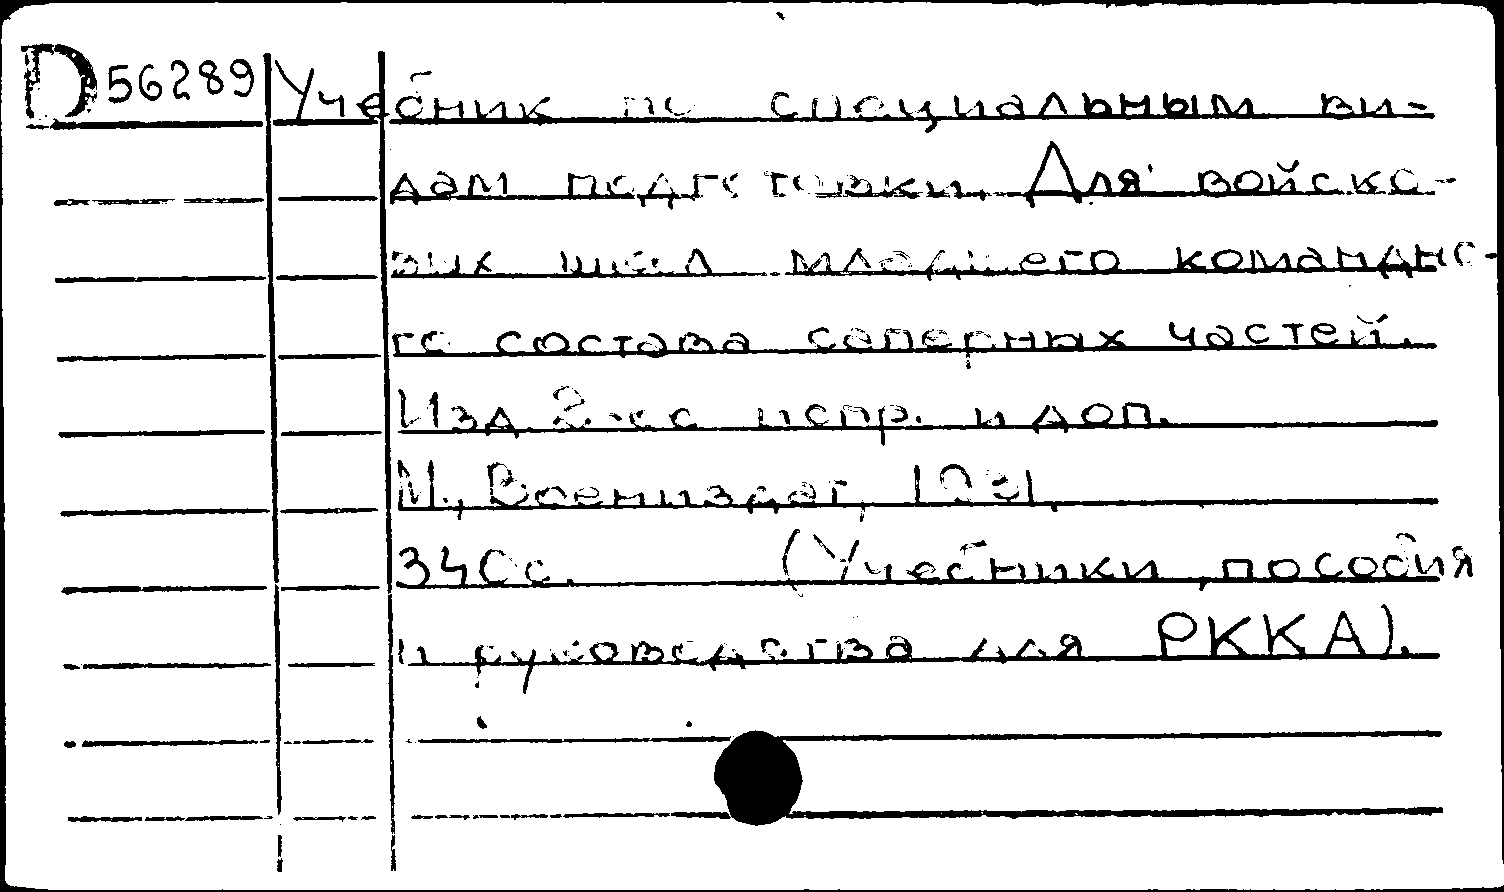 D 56289 Учебник по специальным ви-
дам подготовки. Для войско-
вых школ младшего командно-
го состава саперных частей.
Изд. 2-ое испр. и доп.
М., Воениздат, 1931.
340 с. (Учебники, пособия
и руководства для РККА).